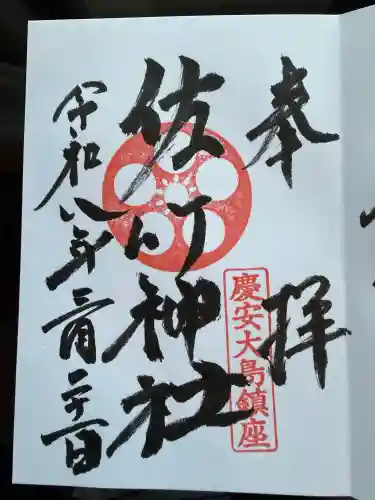 奉拝
慶安大島鎮座
佐竹神社
令和八年三月二十一日